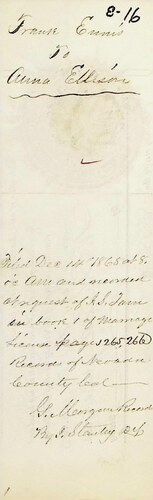 8-16
Frank Ennis
To
Anna Ellison
Filed Dec 14th 1865 at 8
o'c AM and recorded
at request of J.S. Lam
in book 1 of Marriage
License page 265.266
Record of Nevada
County Cal
Recorder
By J. Stanley Dep